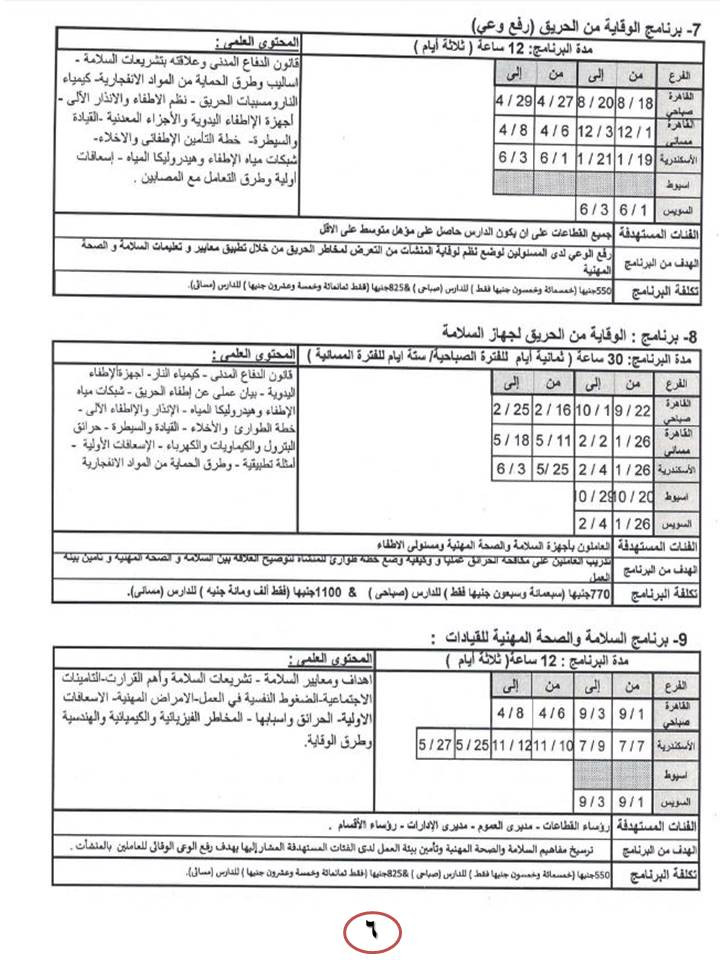 7- برنامج الوقاية من الحريق (رفع وعي)
مدة البرنامج: 12 ساعة ( ثلاثة أيام )
المحتوى العلمى :
الفرع من إلى من إلى
القاهرة صباحي 8 / 18 8 / 20 4 / 27 4 / 29
القاهرة مسائى 12 / 1 12 / 3 4 / 6 4 / 8
الأسكندرية 1 / 19 1 / 21 6 / 1 6 / 3
اسيوط
السويس 6 / 1 6 / 3
قانون الدفاع المدنى وعلاقته بتشريعات السلامة -
اساليب وطرق الحماية من المواد الانفجارية- كيمياء
النارومسببات الحريق - نظم الاطفاء والانذار الآلى -
أجهزة الإاطفاء اليدوية والأجزاء المعدنية -القيادة
والسيطرة- خطة التأمين الإطفائى والاخلاء-
شبكات مياه الإطفاء وهيدروليكا المياه - إسعافات
أولية وطرق التعامل مع المصابين .
الفئات المستهدفة جميع القطاعات على ان يكون الدارس حاصل على مؤهل متوسط على الاقل
الهدف من البرنامج رفع الوعي لدى المسئولين لوضع نظم لوقاية المنشأت من التعرض لمخاطر الحريق من خلال تطبيق معايير و تعليمات السلامة و الصحة
المهنية
تكلفة البرنامج 550جنيها (خمسمائة وخمسون جنيها فقط ) للدارس (صباحى ) &825جنيها (فقط ثمانمائة وخمسة وعشرون جنيها ) للدارس (مسائى).
8- برنامج : الوقاية من الحريق لجهاز السلامة
مدة البرنامج: 30 ساعة ( ثمانية أيام للفترة الصباحية/ ستة ايام للفترة المسائية )
المحتوى العلمى :
الفرع من إلى من إلى
القاهرة صباحي 9 / 22 10 / 1 2 / 16 2 / 25
القاهرة مسائى 1 / 26 2 / 2 5 / 11 5 / 18
الأسكندرية 1 / 26 2 / 4 5/ 25 6 / 3
اسيوط 10 / 20 10 / 29
السويس 1 / 26 2 / 4
قانون الدفاع المدنى - كيمياء النار- اجهزةالإطفاء
اليدوية - بيان عملى عن إطفاء الحريق - شبكات مياه
الإطفاء وهيدروليكا المياه - الإنذار والإطفاء الآلى -
خطة الطوارئ والأخلاء - القيادة والسيطرة - حرائق
البترول والكيماويات والكهرباء - الإسعافات الأولية -
أمثلة تطبيقية - وطرق الحماية من المواد الانفجارية
الفئات المستهدفة العاملون بأجهزة السلامة والصحة المهنية ومسئولى الاطفاء
الهدف من البرنامج تدريب العاملين على مكافحة الحرائق عمليا و كيفية وضع خطة طوارئ للمنشاة لتوضيح العلاقة بين السلامة و الصحة المهنية و تامين بيئة
العمل
تكلفة البرنامج 770جنيها (سبعمائة وسبعون جنيها فقط ) للدارس (صباحى ) & 1100جنيها (فقط ألف ومائة جنيه ) للدارس (مسائى).
9- برنامج السلامة والصحة المهنية للقيادات :
مدة البرنامج : 12 ساعة( ثلاثة أيام )
المحتوى العلمى :
الفرع من إلى من إلى
القاهرة صباحي 9 / 1 9 / 3 4 / 6 4 / 8
الأسكندرية 7 / 7 7 / 9 11 / 10 11 / 12 5 / 25 5 / 27
اسيوط
السويس 9 / 1 9 / 3
اهداف ومعايير السلامة - تشريعات السلامة وأهم القرارت-التامينات
الاجتماعية-الضغوط النفسية في العمل-الامراض المهنية- الاسعافات
الاولية- الحرائق واسبابها - المخاطر الفيزيائية والكيميائية والهندسية
وطرق الوقاية.
الفئات المستهدفة رؤساء القطاعات - مديرى العموم - مديرى الإدارات - رؤساء الأقسام .
الهدف من البرنامج ترسيخ مفاهيم السلامة والصحة المهنية وتأمين بيئة العمل لدى الفئات المستهدفة المشار إليها بهدف رفع الوعى الوقائى للعاملين بالمنشأت .
تكلفة البرنامج 550جنيها (خمسمائة وخمسون جنيها فقط ) للدارس (صباحى ) &825جنيها (فقط ثمانمائة وخمسة وعشرون جنيها ) للدارس (مسائى).
٦